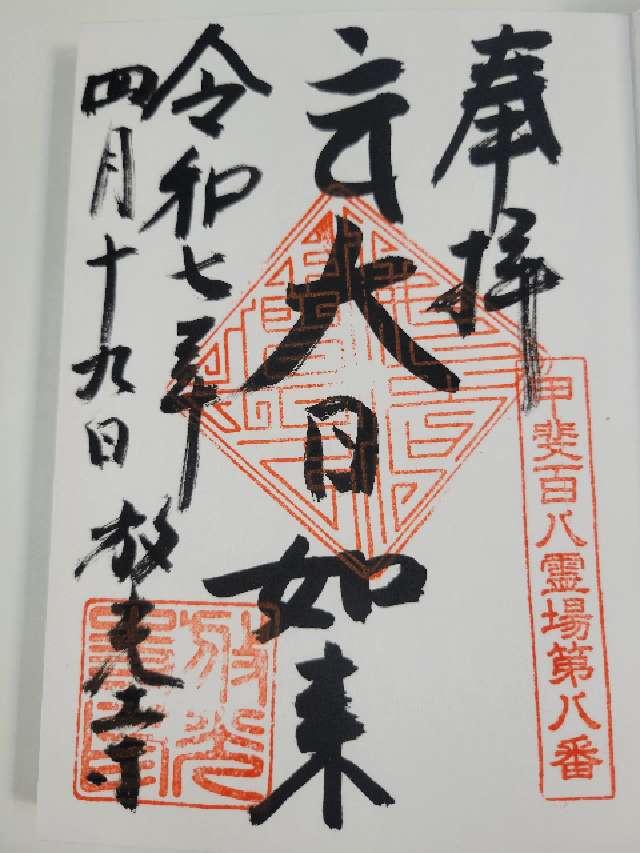 奉拝
甲斐百八霊場第八番
大日如来
令和七年
四月十九日 放光寺